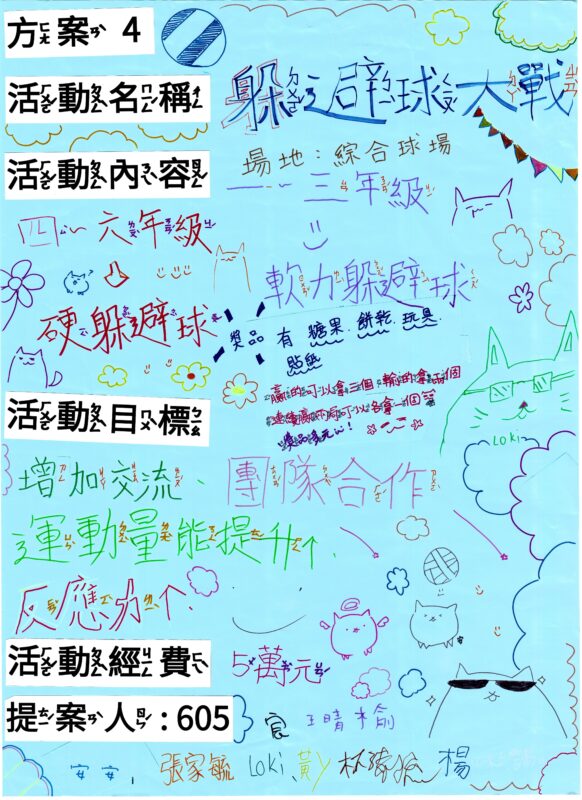 方案 4
活動名稱
躲避球大戰
活動內容
場地:綜合球場
一~三年級
四~六年級
軟力躲避球
硬躲避球
獎品 有 糖果 餅乾 玩具
貼紙
贏的可以拿三個 輸的拿兩個
連續贏兩局可以各拿一個
獎品多元~!
LOKI
活動目標
增加交流、
團隊合作
運動量能提升↑、
反應力↑、
活動經費
5萬元
提案人:605
宸 王晴
安安、張家毓 LOKI、黃Y 林 楊